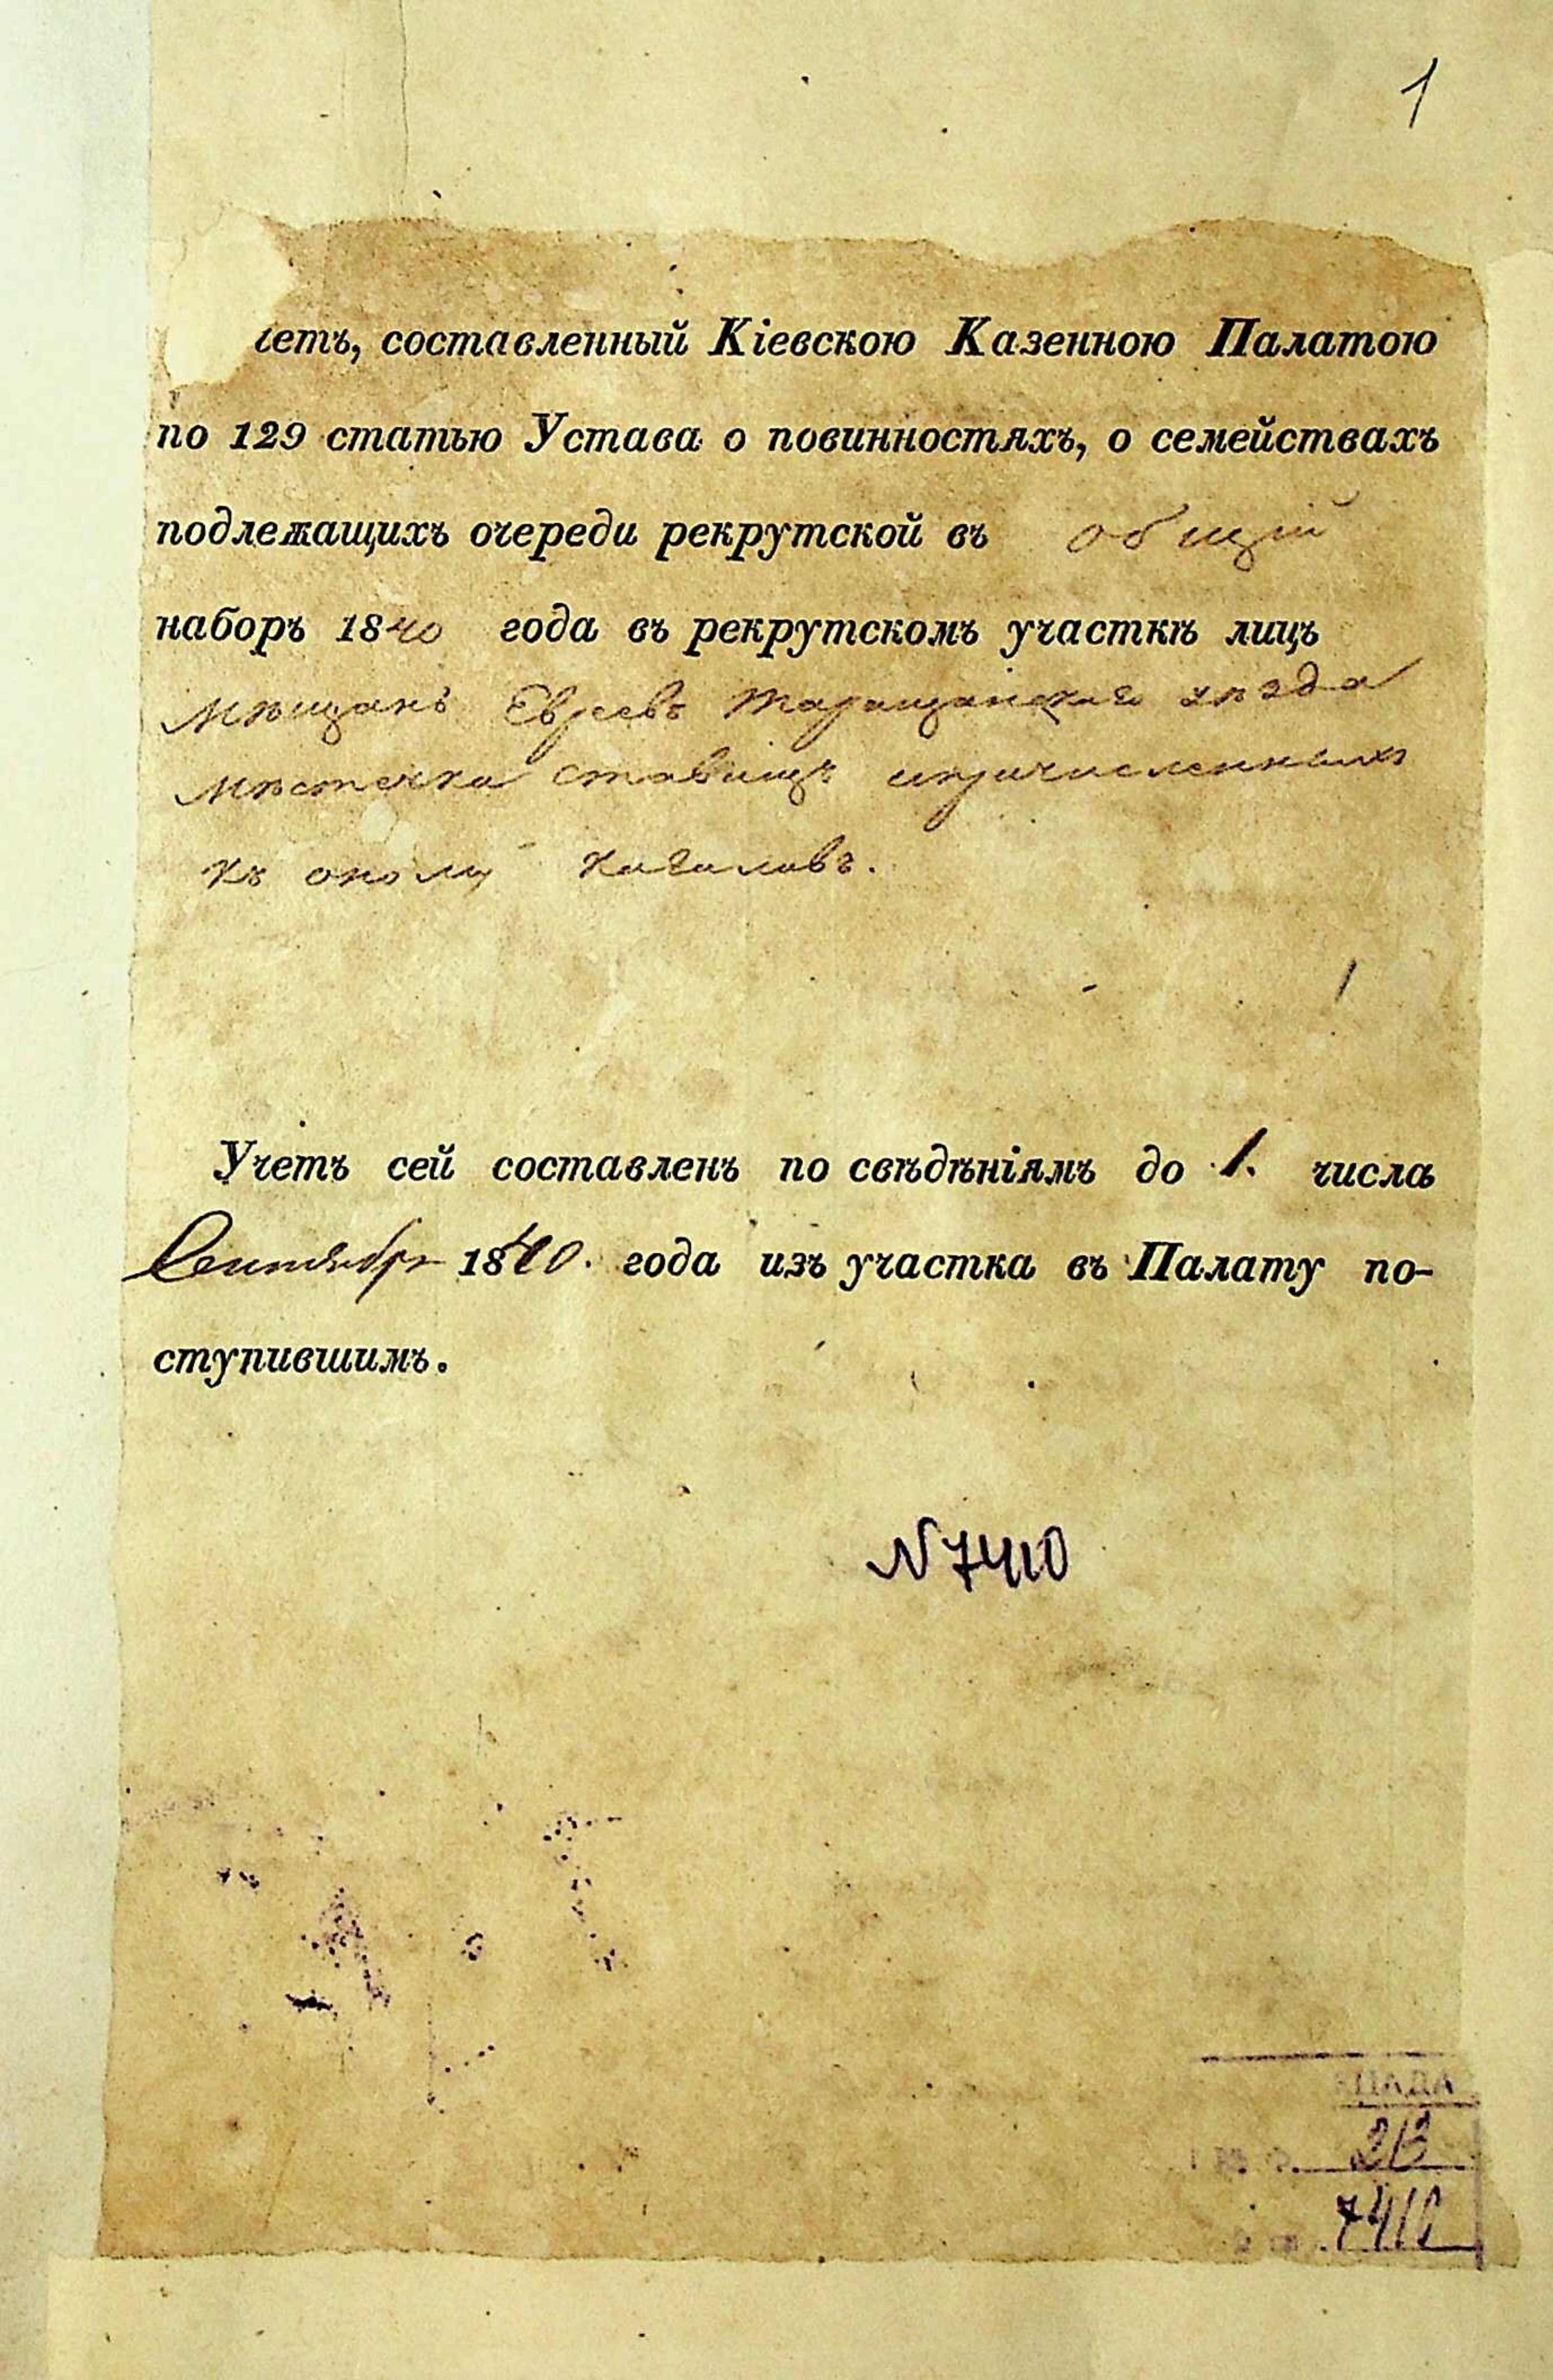 1
четъ, составленный Кіевскою Казенною Палатою
по 129 статью Устава о повинностяхъ, о семействахъ
подлежащихъ очереди рекрутской въ общій
наборъ 1840 года въ рекрутскомъ участкѣ лицъ
мѣщанъ Евреевъ Таращанскаго уѣзда
мѣстечка Ставищъ ипричисленныхъ
къ оному кагаловъ.
Учетъ сей составленъ по свѣдѣніямъ до 1. числа
Сентября 1840. года изъ участка въ Палату по-
ступившимъ.
N 7410
ЦІАДА
7410